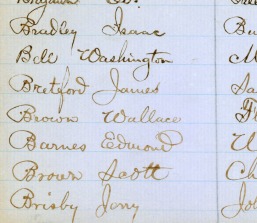 Bradley Isaac Be
Bell Washington M
Bretford James Sa
Brown Wallace Fr
Barnes Edmond W
Brown Scott Ch
Brisby Jony Joh